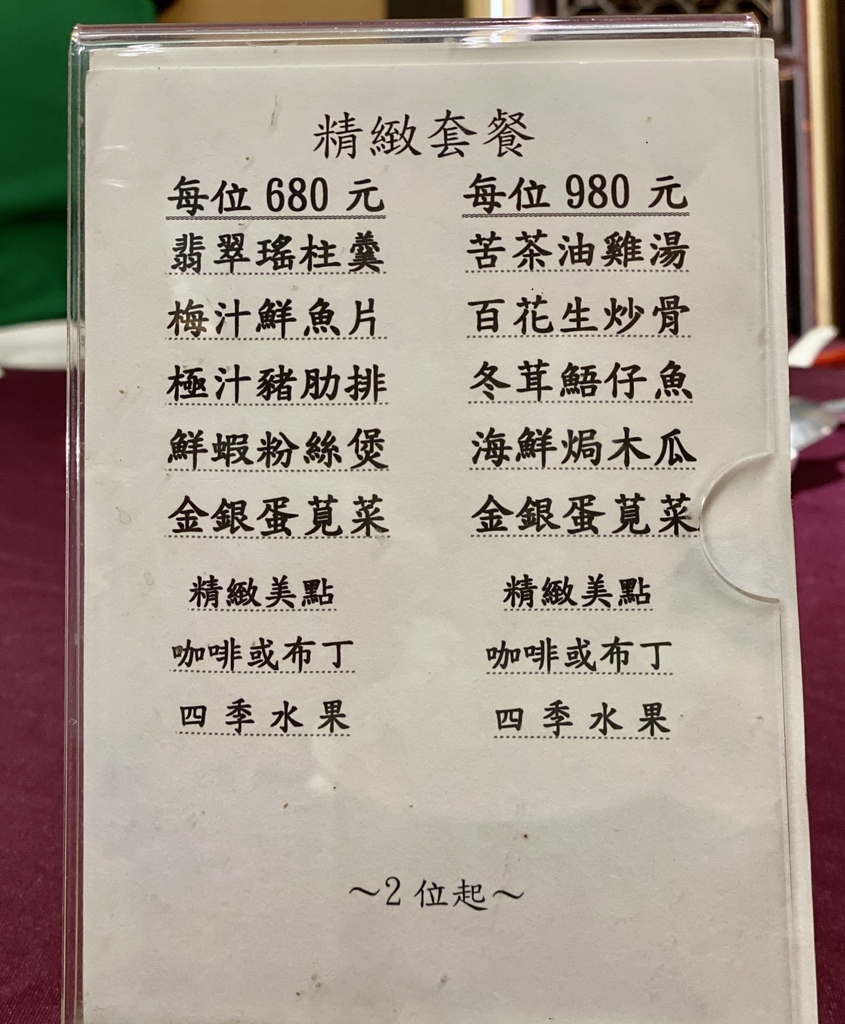 精緻套餐
每位 680 元
翡翠瑤柱羹
梅汁鮮魚片
極汁豬肋排
鮮蝦粉絲煲
金銀蛋莧菜
精緻美點
咖啡或布丁
四季水果
每位 980 元
苦茶油雞湯
百花生炒骨
冬茸鯃仔魚
海鮮焗木瓜
金銀蛋莧菜
精緻美點
咖啡或布丁
四季水果
～2 位起～